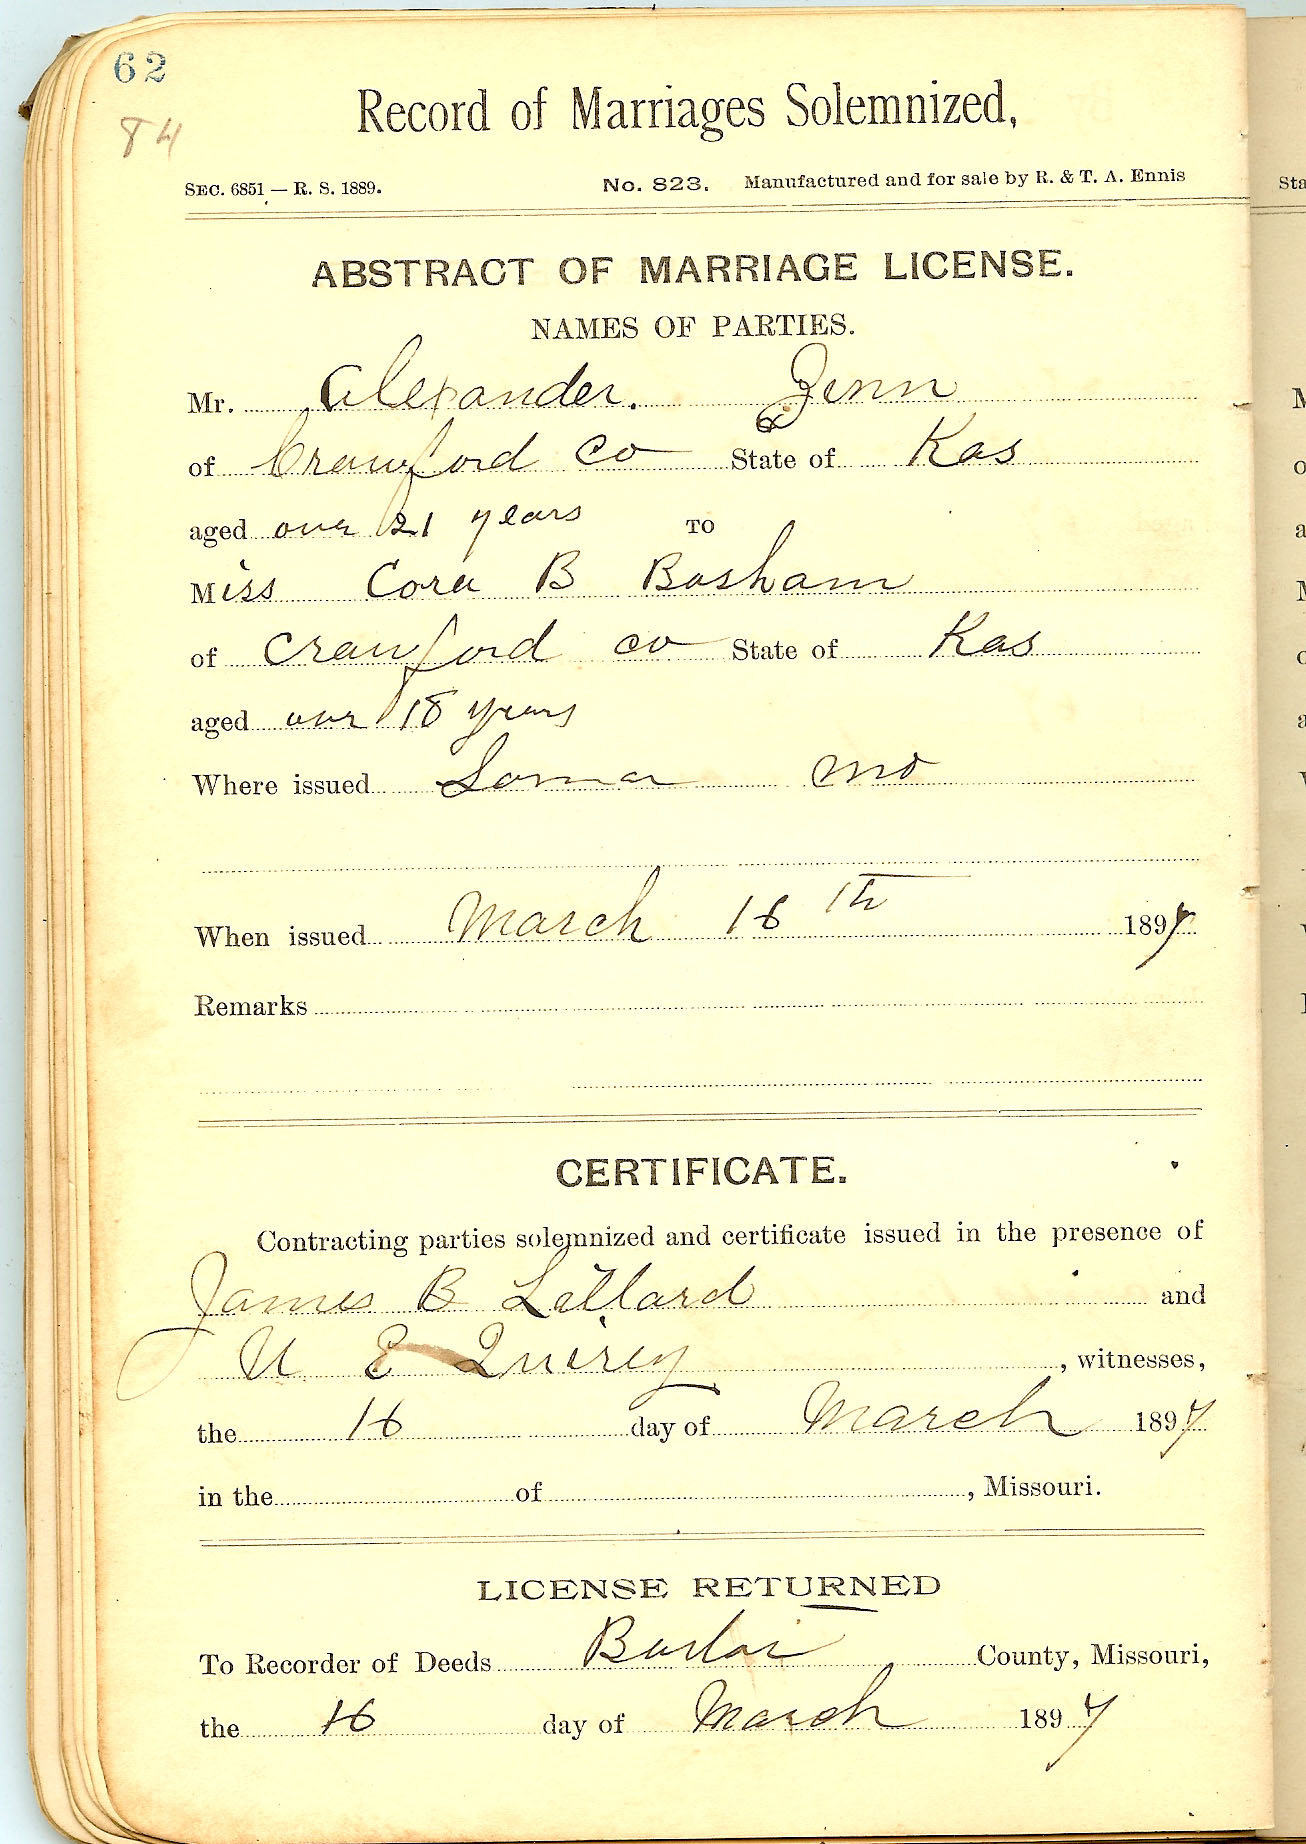 62
84
Record of Marriages Solemnized,
SEC. 6851 — R. S. 1889. No. 823. Manufactured and for sale by R. & T. A. Ennis
ABSTRACT OF MARRIAGE LICENSE.
NAMES OF PARTIES.
Mr. Alexander. Zinn
of Crawford Co State of Kas
aged over 21 years TO
Miss Cora B Basham
of Crawford co State of Kas
aged over 18 years
Where issued Lamar Mo
When issued March 16 th 1897
Remarks
CERTIFICATE.
Contracting parties solemnized and certificate issued in the presence of
James B Lillard and
E , witnesses,
the 16 day of March 1897
in the of , Missouri.
LICENSE RETURNED
To Recorder of Deeds Barton County, Missouri,
the 16 day of March 1897
Sta